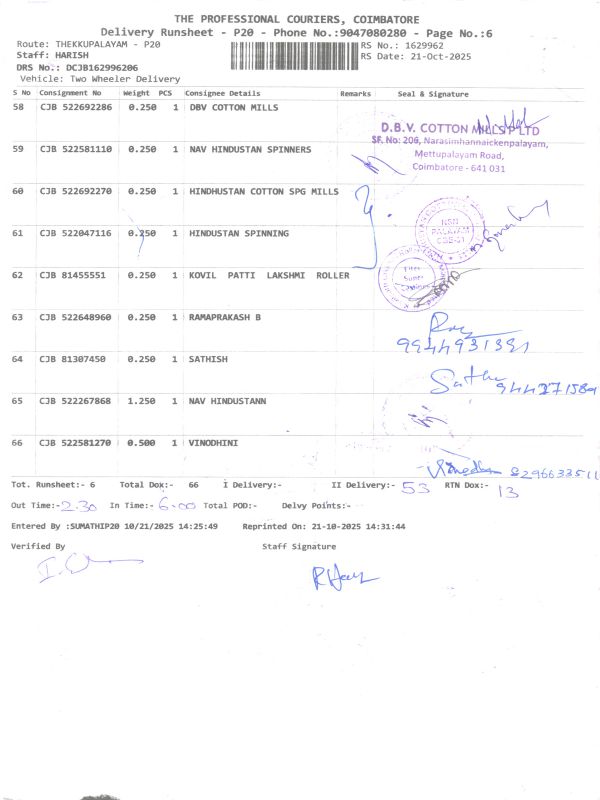 THE PROFESSIONAL COURIERS, COIMBATORE
Delivery Runsheet - P20 - Phone No.:9047080280 - Page No.:6
Route: THEKKUPALAYAM - P20 RS No.: 1629962
Staff: HARISH RS Date: 21-Oct-2025
DRS No.: DCJB162996206
Vehicle: Two Wheeler Delivery
S No Consignment No Weight PCS Consignee Details Remarks Seal & Signature
58 CJB 522692286 0.250 1 DBV COTTON MILLS
D.B.V. COTTON MILLS P LTD
SF. No: 206, Narasimhannaickenpalayam,
Mettupalayam Road,
Coimbatore - 641 031
59 CJB 522581110 0.250 1 NAV HINDUSTAN SPINNERS
60 CJB 522692270 0.250 1 HINDHUSTAN COTTON SPG MILLS
61 CJB 522047116 0.250 1 HINDUSTAN SPINNING
NSN
PALAYAM
CBE-31
62 CJB 81455551 0.250 1 KOVIL PATTI LAKSHMI ROLLER
63 CJB 522648960 0.250 1 RAMAPRAKASH B
9944931391
64 CJB 81307450 0.250 1 SATHISH
65 CJB 522267868 1.250 1 NAV HINDUSTANN
66 CJB 522581270 0.500 1 VINODHINI
8296633511
Tot. Runsheet:- 6 Total Dox:- 66 I Delivery:- II Delivery:- 53 RTN Dox:- 13
Out Time:- 2.30 In Time:- 6.00 Total POD:- Delvy Points:-
Entered By :SUMATHIP20 10/21/2025 14:25:49 Reprinted On: 21-10-2025 14:31:44
Verified By Staff Signature